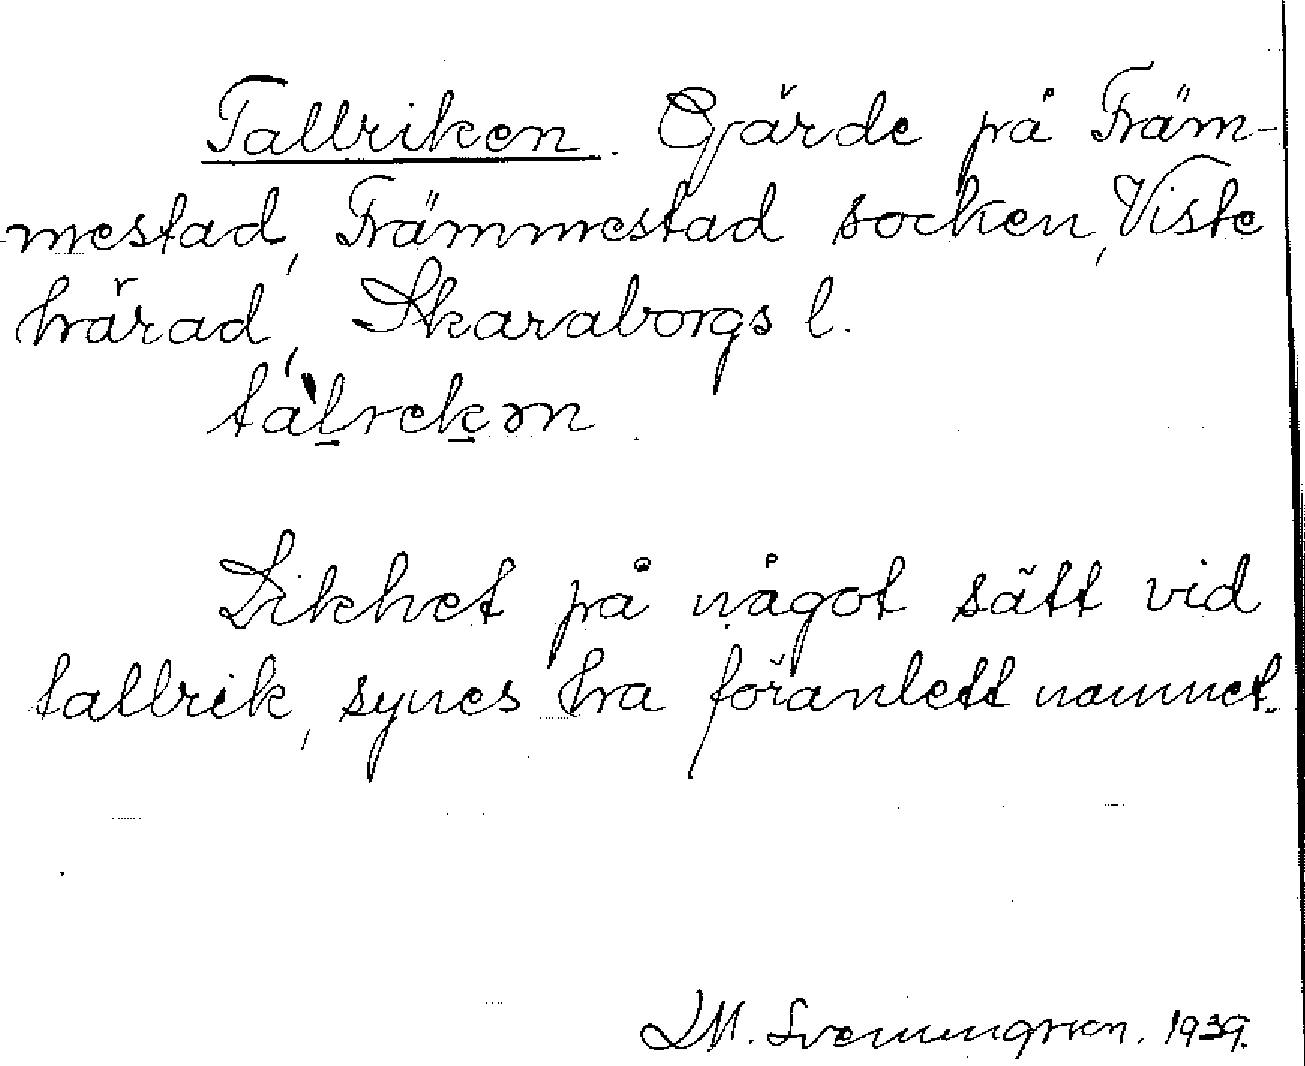 Tallriken. Gärde på Främ-
mestad, Främmestad socken, Viste
härad, Skaraborgs l.
tàl̠rek̠ən
Likhet på något sätt vid
tallrik, synes ha föranlett namnet.
LM. Svenungsson. 1939.